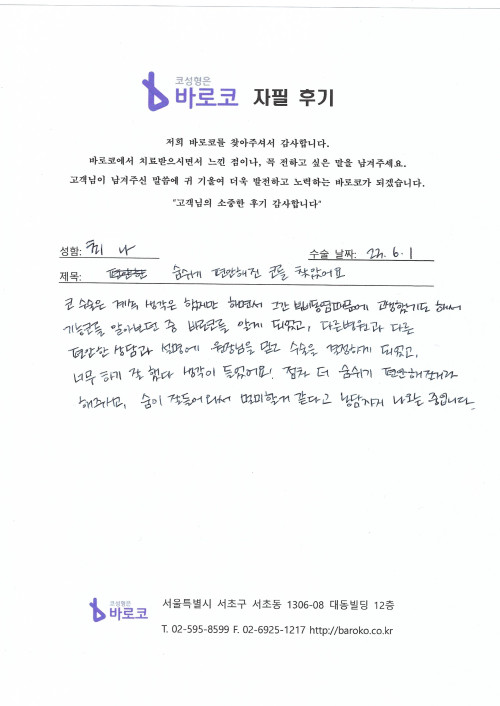 코성형은
바로코 자필 후기
저희 바로코를 찾아주셔서 감사합니다.
바로코에서 치료받으시면서 느낀 점이나, 꼭 전하고 싶은 말을 남겨주세요.
고객님이 남겨주신 말씀에 귀 기울여 더욱 발전하고 노력하는 바로코가 되겠습니다.
"고객님의 소중한 후기 감사합니다"
성함: 최 나 수술 날짜: 23. 6. 1
제목: 숨쉬기 편안해진 코를 찾았어요
코 수술은 계속 생각은 했지만 하면서 그간 때문에 고생하기도 해서
기능코를 알아보던 중 바로코를 알게 되었고, 다른병원과 다른
편안한 상담과 설명에 원장님을 믿고 수술을 결정하게 되었고,
너무 하기 잘 했다 생각이 들었어요! 점차 더 숨쉬기 편안해진거라
해주시고, 숨이 잘들어와서 같다고 농담까지 나오는 중입니다.
코성형은
바로코
서울특별시 서초구 서초동 1306-08 대동빌딩 12층
T. 02-595-8599 F. 02-6925-1217 http://baroko.co.kr